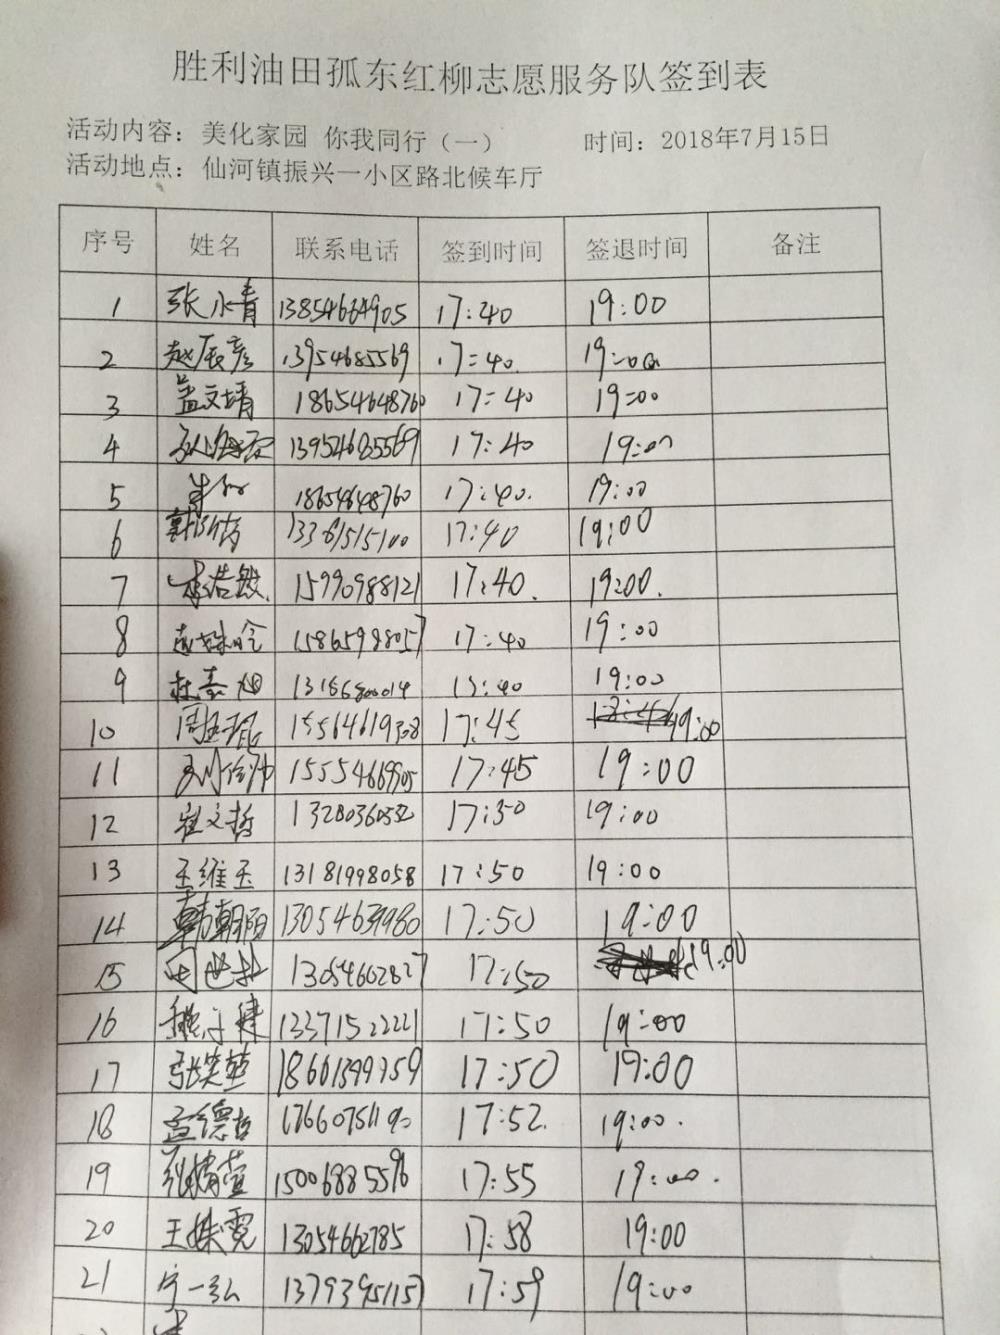 胜利油田孤东红柳志愿服务队签到表
活动内容：美化家园 你我同行（一） 时间：2018年7月15日
活动地点：仙河镇振兴一小区路北候车厅
序号 姓名 联系电话 签到时间 签退时间 备注
1 张永青 13854664905 17:40 19:00
2 赵辰彦 13954685569 17:40 19:00
3 孟文靖 18654648760 17:40 19:00
4 13954685569 17:40 19:00
5 18654648760 17:40 19:00
6 13361515100 17:40 19:00
7 李浩毅 15990988121 17:40 19:00
8 15865988057 17:40 19:00
9 17:40 19:00
10 17:45 19:00
11 17:45 19:00
12 崔文哲 13280360532 17:50 19:00
13 王维玉 13181998058 17:50 19:00
14 韩朝阳 13054639980 17:50 19:00
15 13054602827 17:50 19:00
16 魏子健 13371522221 17:50 19:00
17 张笑堃 18661399959 17:50 19:00
18 孟德哲 17660751190 17:52 19:00
19 15006885596 17:55 19:00
20 王姝霓 13054662785 17:58 19:00
21 宁一弘 13793951157 17:59 19:00